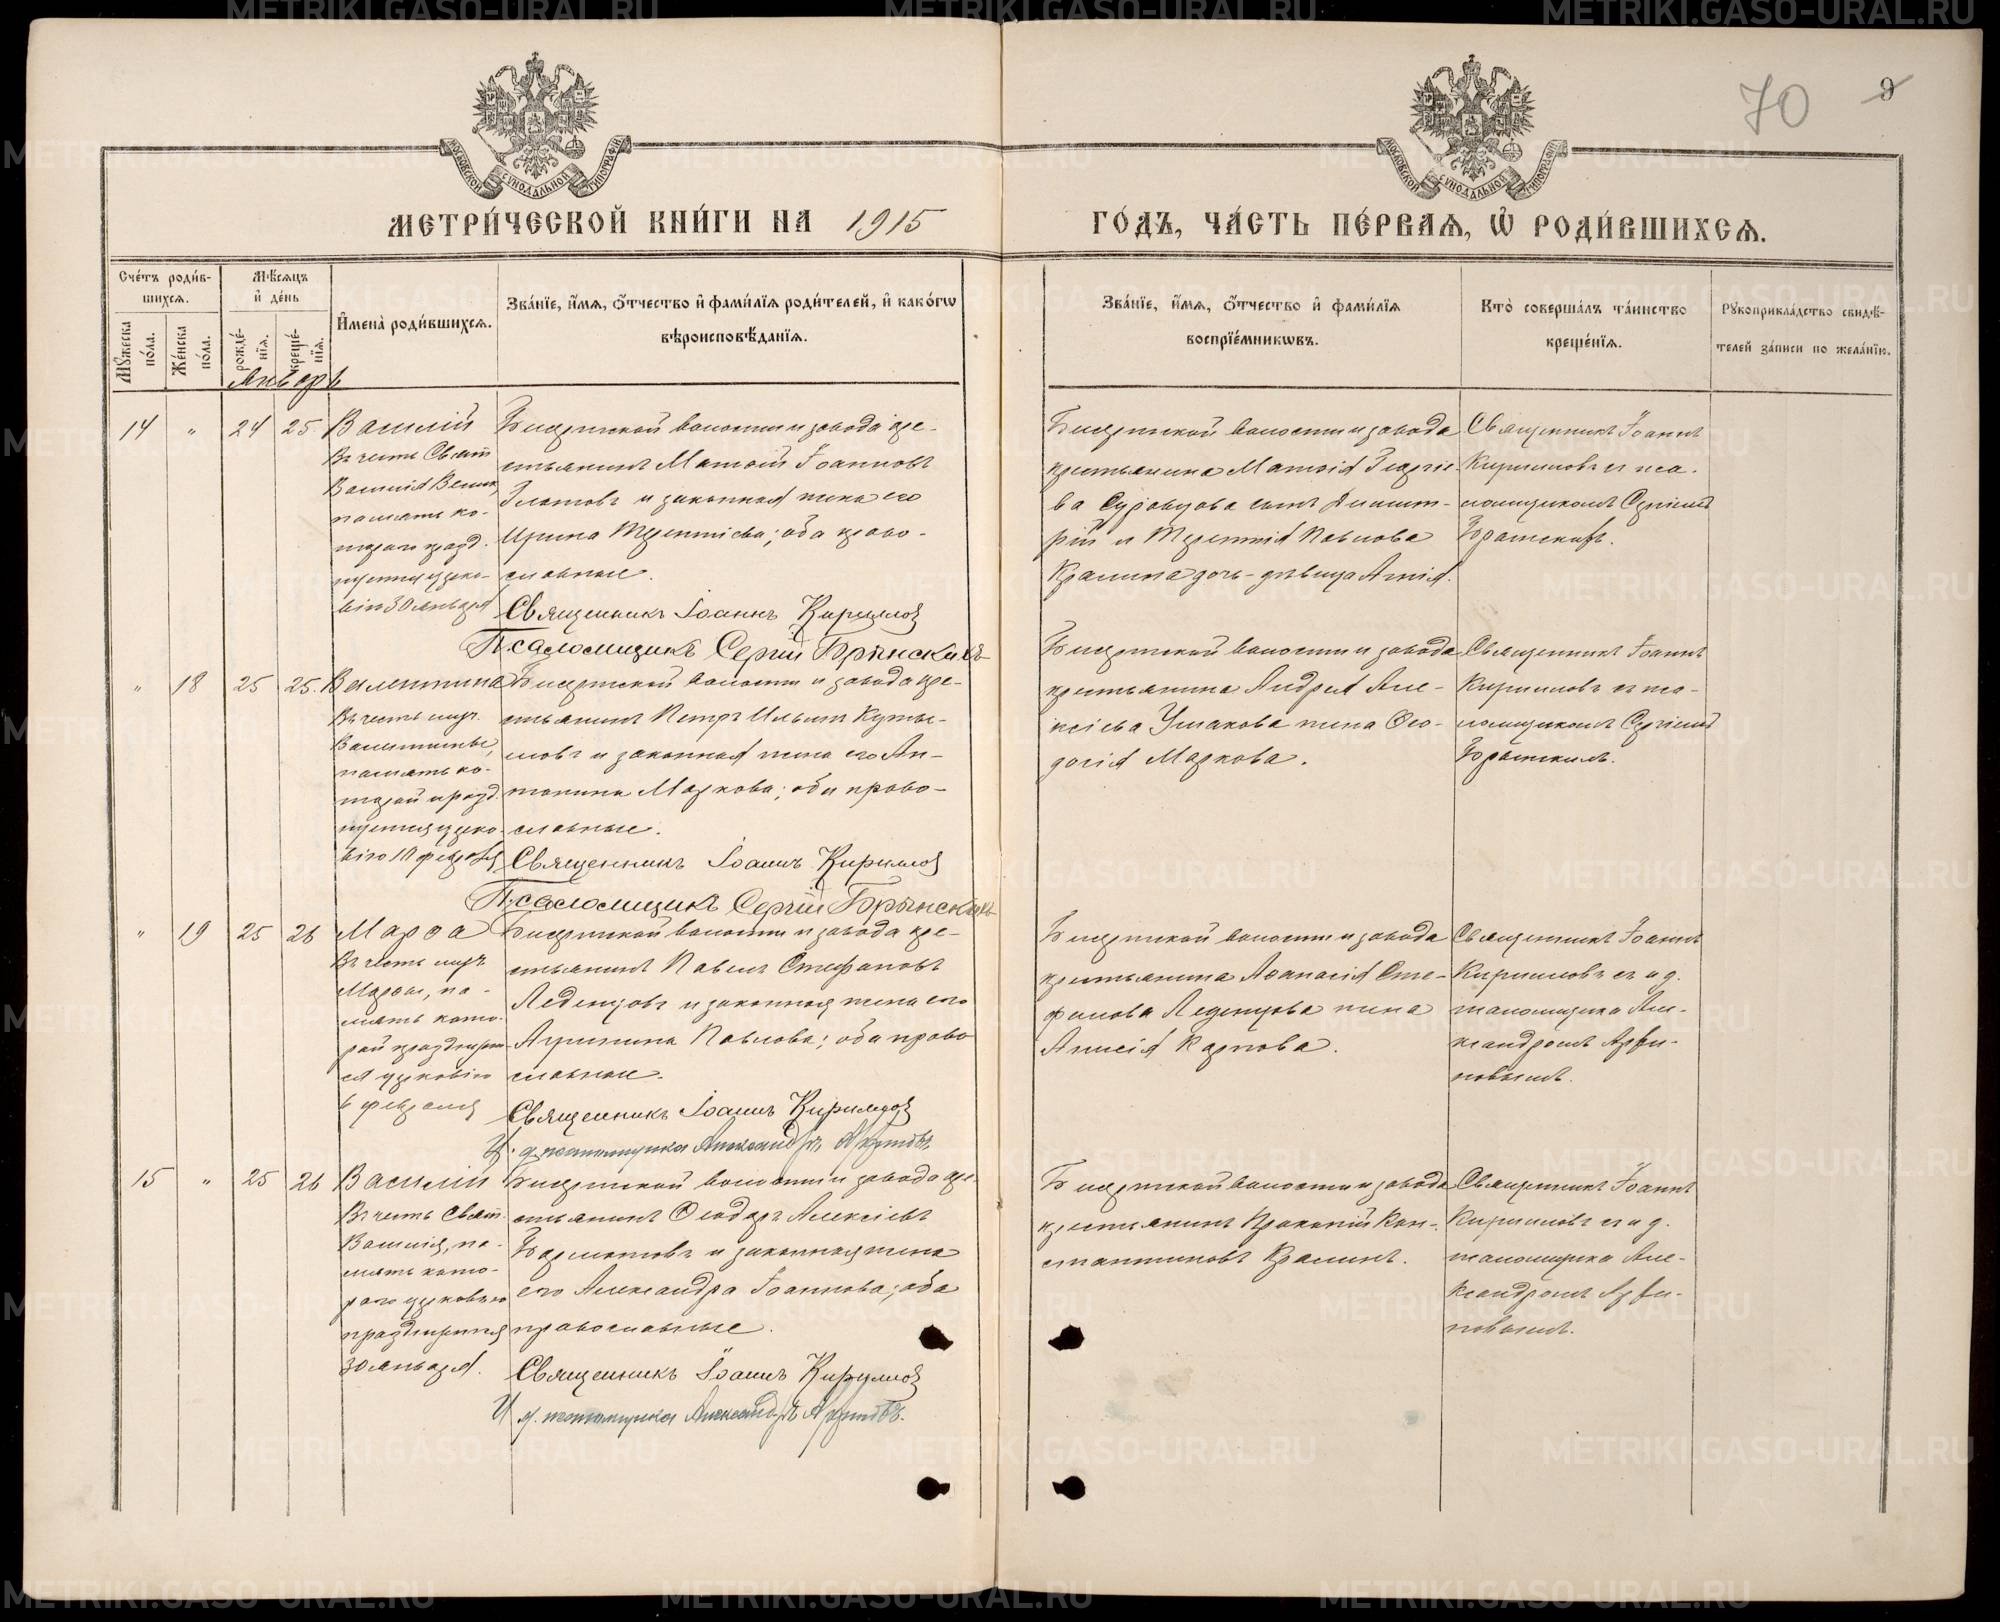 70
9
МЕТРИ́ЧЕСКОЙ КНИ́ГИ НА 1915
ГО́ДЪ, ЧА́СТЬ ПЕ́РВАЯ, Ѡ҆ РОДИ́ВШИХСЯ.
Сче́тъ роди́в-
шихся.
Мꙋ́жеска по́ла.
Же́нска по́ла.
Мѣ́сяцъ
и҆ де́нь
рожде́-
нїя.
креще́-
нїя.
И҆мена̀ роди́вшихся.
Зва́нїе, и҆́мя, ѻ҆́тчество и҆ фами́лїя роди́телей, и҆ како́гѡ
вѣроисповѣ́данїя.
Зва́нїе, и҆́мя, ѻ҆́тчество и҆ фами́лїя
воспрїе́мникѡвъ.
Кто̀ соверша́лъ та́инство
креще́нїя.
Рꙋкоприкла́дство свидѣ́-
телей за́писи по жела́нїю.
Январь
14 " 24 25
Василій
Въ честь Свят.
Василія Велик,
память ко-
тораго празд.
нуется церко-
вію 30 января
Бисертской волости и завода кре-
стьянинъ Матѳій Іоанновъ
и законная жена его
Ирина Терентіева; оба право-
славные.
Священникъ Іоаннъ Кирилловъ
Псаломщикъ Сергій Брянскихъ
Бисертской волости и завода
крестьянина Матѳія Георгіе-
ва Суровцова сынъ Димит-
рій и Терентія Павлова
дочь-дѣвица
Священникъ Іоаннъ
Кирилловъ съ пса-
ломщикомъ Сергіемъ
" 18 25 25.
Валентина
Въ честь муч.
Валентины,
память ко-
торой празд.
нуется церко-
вію 10 февраля
Бисертской волости и завода кре-
стьянинъ Петръ Ильинъ
и законная жена его Ан-
тонина Маркова; оба право-
славные.
Священникъ Іоаннъ Кирилловъ
Псаломщикъ Сергій Брянскихъ
Бисертской волости и завода
крестьянина Андрея Але-
ксіева Ушакова жена Ѳео-
досія Маркова.
Священникъ Іоаннъ
Кирилловъ съ пса-
ломщикомъ Сергіемъ
" 19 25 26
Марѳа
Въ честь муч.
Марѳы, па-
мять кото-
рой празднует-
ся церковію
6 февраля
Бисертской волости и завода кре-
стьянинъ Павелъ Стефановъ
Леденцовъ и законная жена его
Павлова; оба право
славные.
Священникъ Іоаннъ Кирилловъ
И. д. псаломщика Александръ
Бисертской волости и завода
крестьянина Аѳанасія Сте-
фанова Леденцова жена
Анисія Карпова.
Священникъ Іоаннъ
Кирилловъ съ и д.
псаломщика Але-
ксандромъ
15 " 25 26
Василій
Въ честь Свят.
Василія, па-
мять кото-
раго церковію
празднуется
30 января.
Бисертской волости и завода кре-
стьянинъ Ѳеодоръ Алексіевъ
и законная жена
его Александра Іоаннова; оба
православные.
Священникъ Іоаннъ Кирилловъ
И д. псаломщика Александръ
Бисертской волости и завода
крестьянинъ Прокопій Кон-
стантиновъ
Священникъ Іоаннъ
Кирилловъ съ и д.
псаломщика Але-
ксандромъ